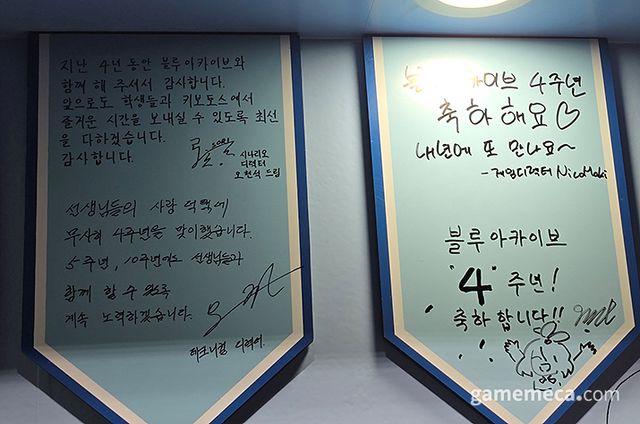 지난 4년 동안 블루아카이브와
함께 해 주셔서 감사합니다.
앞으로도 학생들과 키보토스에서
즐거운 시간을 보내실 수 있도록 최선
을 다하겠습니다.
감사합니다.
시나리오
디렉터
오현석 드림
선생님들의 사랑 덕택에
무사히 4주년을 맞이했습니다.
5주년, 10주년에도 선생님들과
함께 할 수 있도록
계속 노력하겠습니다.
테크니컬 디렉터.
블루아카이브 4주년
축하해요♡
내년에 또 만나요~
-게임디렉터 NicoMaki
블루아카이브
"4"주년!
축하합니다!!
gamemeca.com